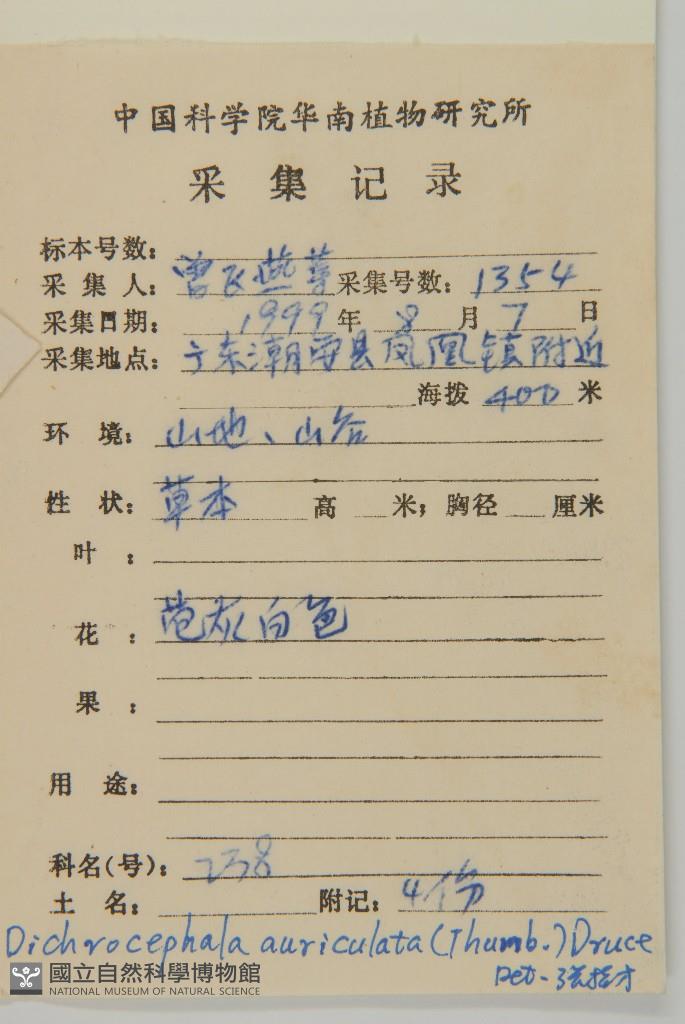 中国科学院华南植物研究所
采集记录
标本号数:
采集人: 曾飞燕等 采集号数: 1354
采集日期: 1999年 8月 7日
采集地点: 广东潮安县凤凰镇附近
海拨 400 米
环境: 山地、山谷
性状: 草本 高 米; 胸径 厘米
叶:
花: 花灰白色
果:
用途:
科名(号): 238
土名: 附记: 4份
Dichrocephala auriculata (Thumb.) Druce
Det.
國立自然科學博物館
NATIONAL MUSEUM OF NATURAL SCIENCE